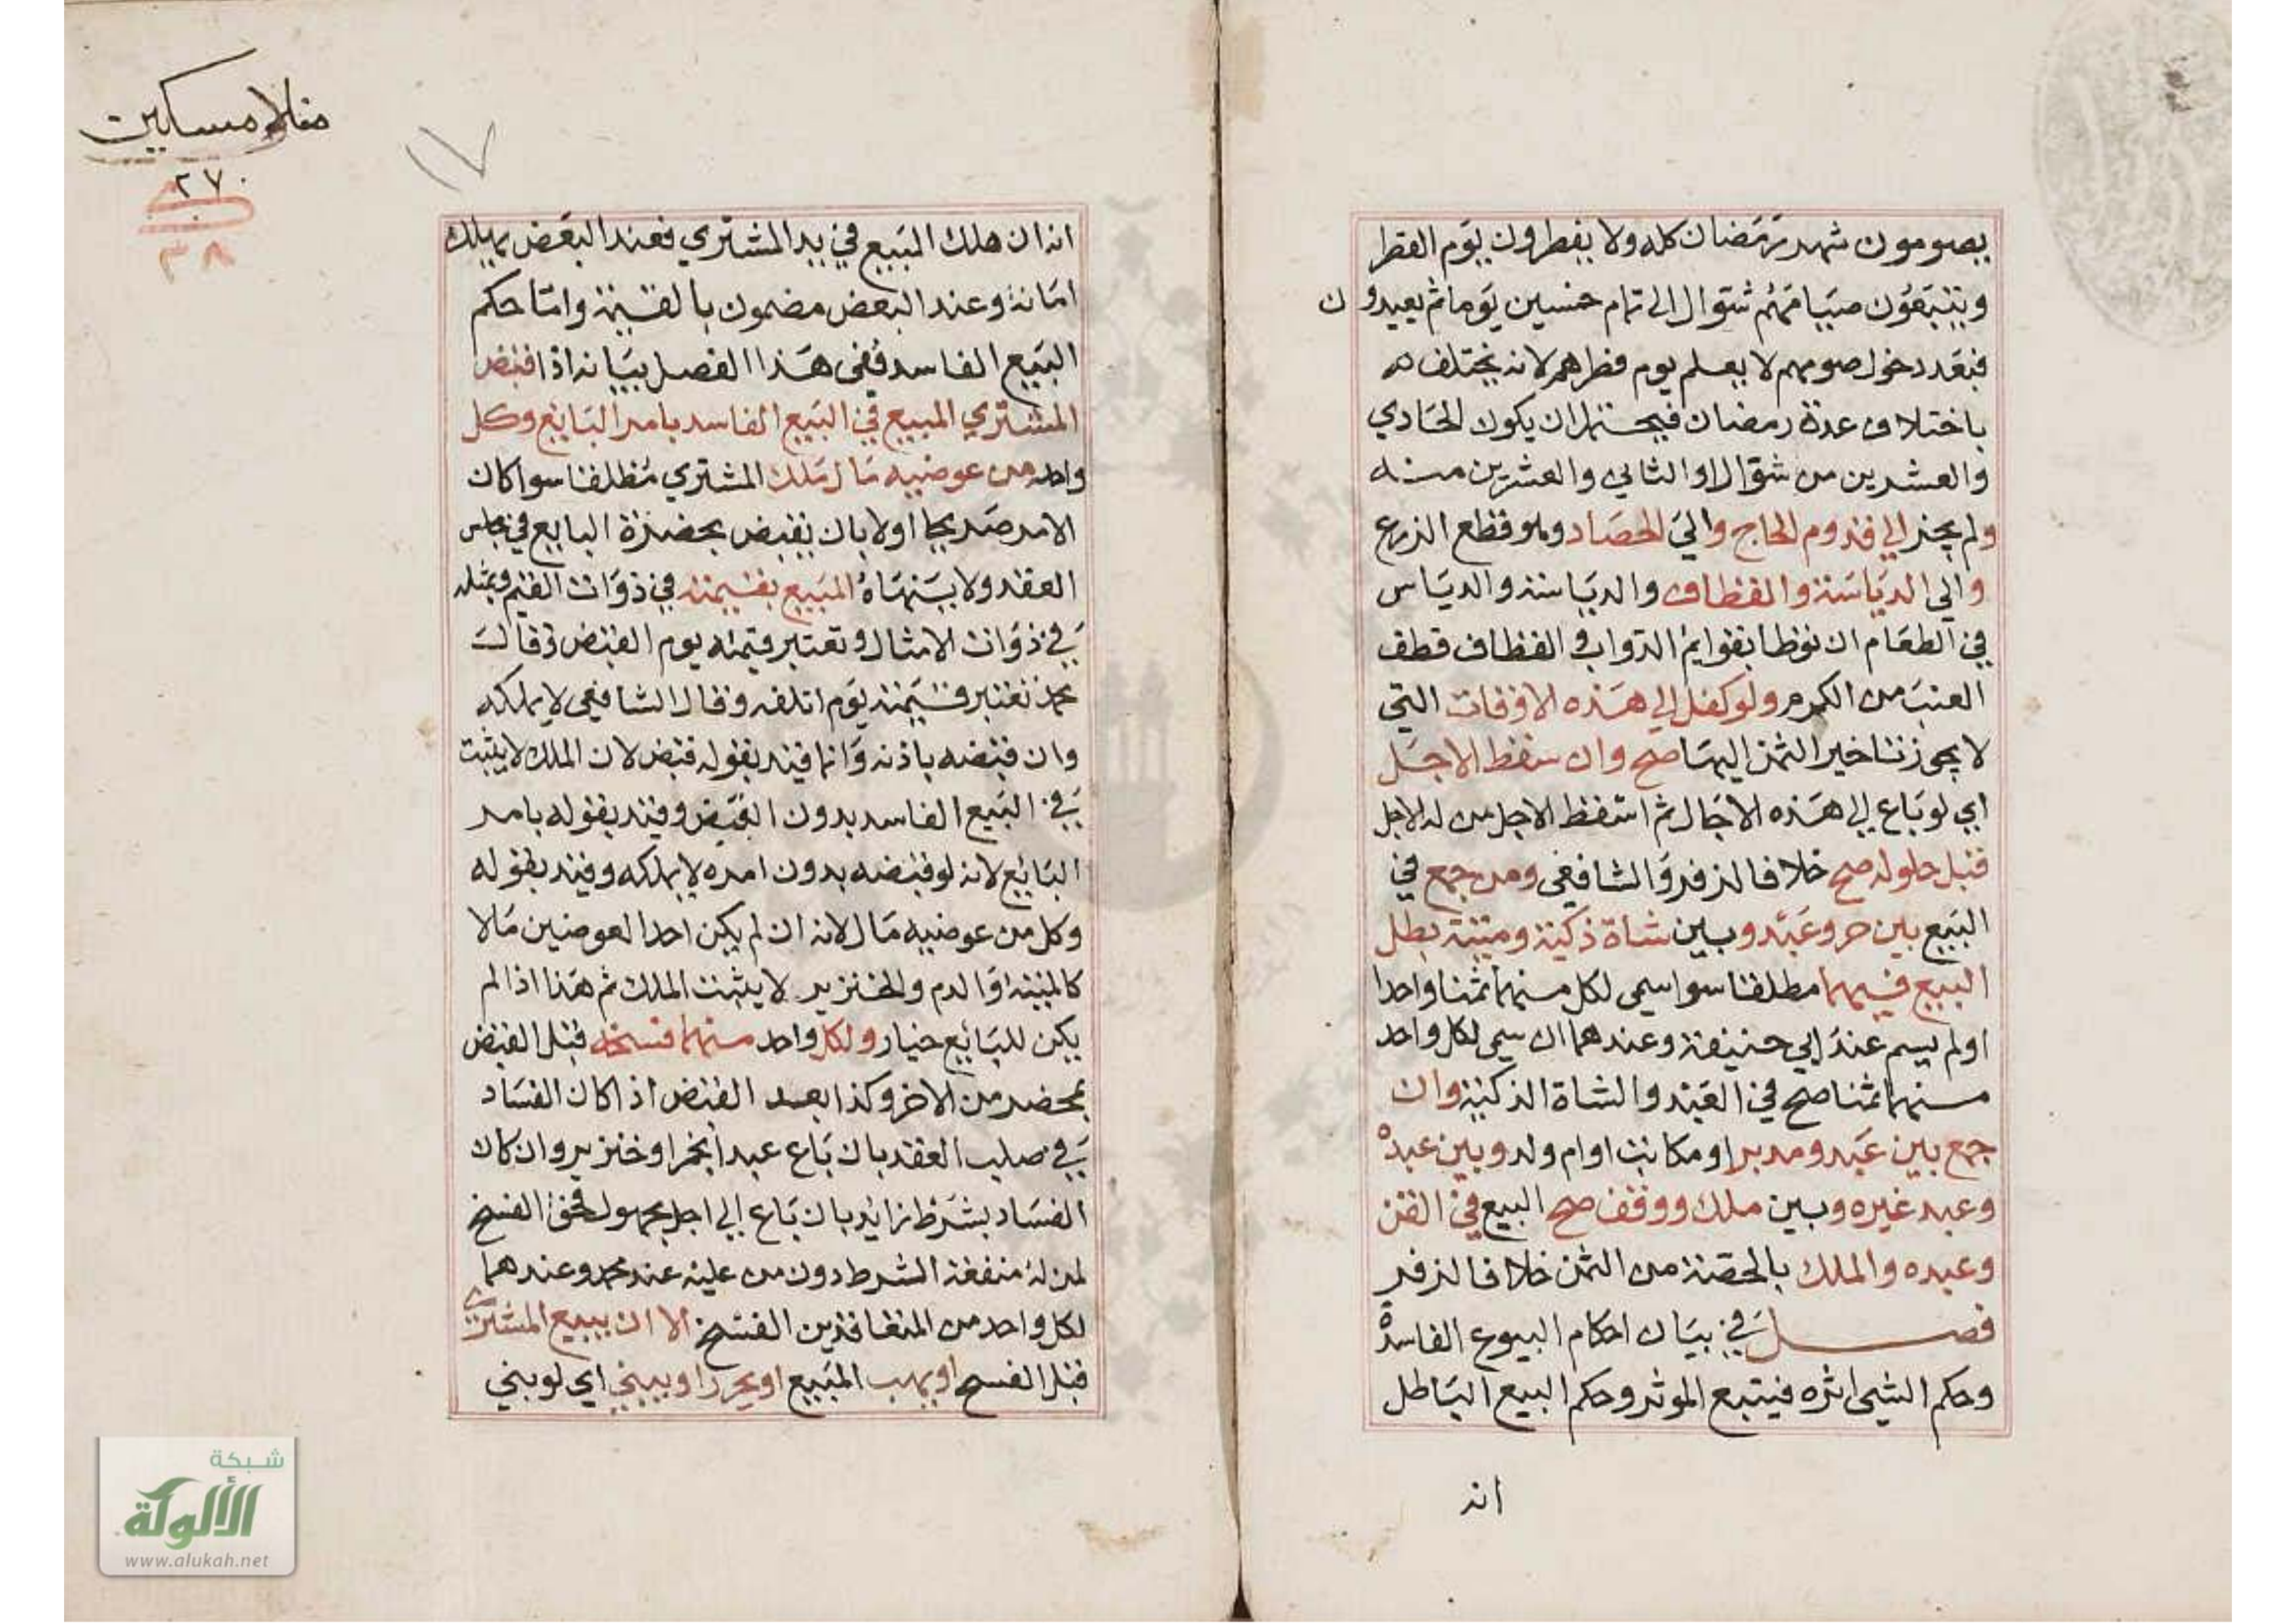 يصومون شهر رمضان كله ولا يفطرون يوم الفطر
ويتبعون صيامهم شوال الى تمام خمسين يوما ثم يعيدون
فبعد دخول صومهم لا يعلم يوم فطرهم لانه يختلف
باختلاف عدة رمضان فيحتمل ان يكون الحادي
والعشرين من شوال او الثاني والعشرين منه
ولم يجز الي قدوم الحاج والي الحصاد وهو قطع الزرع
والي الدياسة والقطاف والدياسة والدياس
في الطعام ان توطا بقوايم الدواب والقطاف قطف
العنب من الكرم ولو كفل الي هذه الاوقات التي
لا يجوز تاخير الثمن اليها صح وان سقط الاجل
اي لو باع الي هذه الاجال ثم اسقط الاجل من له الاجل
قبل حلوله صح خلافا لزفر والشافعي ومن جمع في
البيع بين حر وعبد وبين شاة ذكية وميتة بطل
البيع فيهما مطلقا سوا سمي لكل منهما ثمنا واحدا
او لم يسم عند ابي حنيفة وعندهما ان سمي لكل واحد
منهما ثمنا صح في العبد والشاة الذكية وان
جمع بين عبد ومدبر او مكاتب او ام ولد وبين عبده
وعبد غيره وبين ملك ووقف صح البيع في القن
وعبده والملك بالحصة من الثمن خلافا لزفر
فصل في بيان احكام البيوع الفاسدة
وحكم الشي اثره فيتبع الموثر وحكم البيع الباطل
انه
منلا مسكين
٢٧٠
٣٨
١٧
انه ان هلك المبيع في يد المشتري فعند البعض يهلك
امانة وعند البعض مضمون بالقيمة واما حكم
البيع الفاسد ففي هذا الفصل بيانه اذا قبض
المشتري المبيع في البيع الفاسد بامر البايع وكل
واحد من عوضيه مال ملك المشتري مطلقا سوا كان
الامر صريحا اولا بان يقبض بحضرة البايع في مجلس
العقد ولا ينهاه المبيع بقيمته في ذوات القيم وبمثله
في ذوات الامثال وتعتبر قيمته يوم القبض وقال
محمد تعتبر قيمته يوم اتلفه وقال الشافعي لا يملكه
وان قبضه باذنه وانما قيد بقوله قبض لان الملك لا يثبت
في البيع الفاسد بدون القبض وقيد بقوله بامر
البائع لانه لو قبضه بدون امره لا يملكه وقيد بقوله
وكل من عوضيه مال لانه ان لم يكن احد العوضين مالا
كالميتة او الدم والخنزير لا يثبت الملك ثم هذا اذا لم
يكن للبائع خيار ولكل واحد منهما فسخه قبل القبض
بمحضر من الاخر وكذا بعد القبض اذا كان الفساد
في صلب العقد بان باع عبدا بخمر او خنزير وان كان
الفساد بشرط زايد بان باع الي اجل مجهول فحق الفسخ
لمن له منفعة الشرط دون من عليه عند محمد وعندهما
لكل واحد من المتعاقدين الفسخ الا ان يبيع المشتري
قبل الفسخ او يهب المبيع او يحرر او يبني اي لو بني
شبكة
الألوكة
www.alukah.net